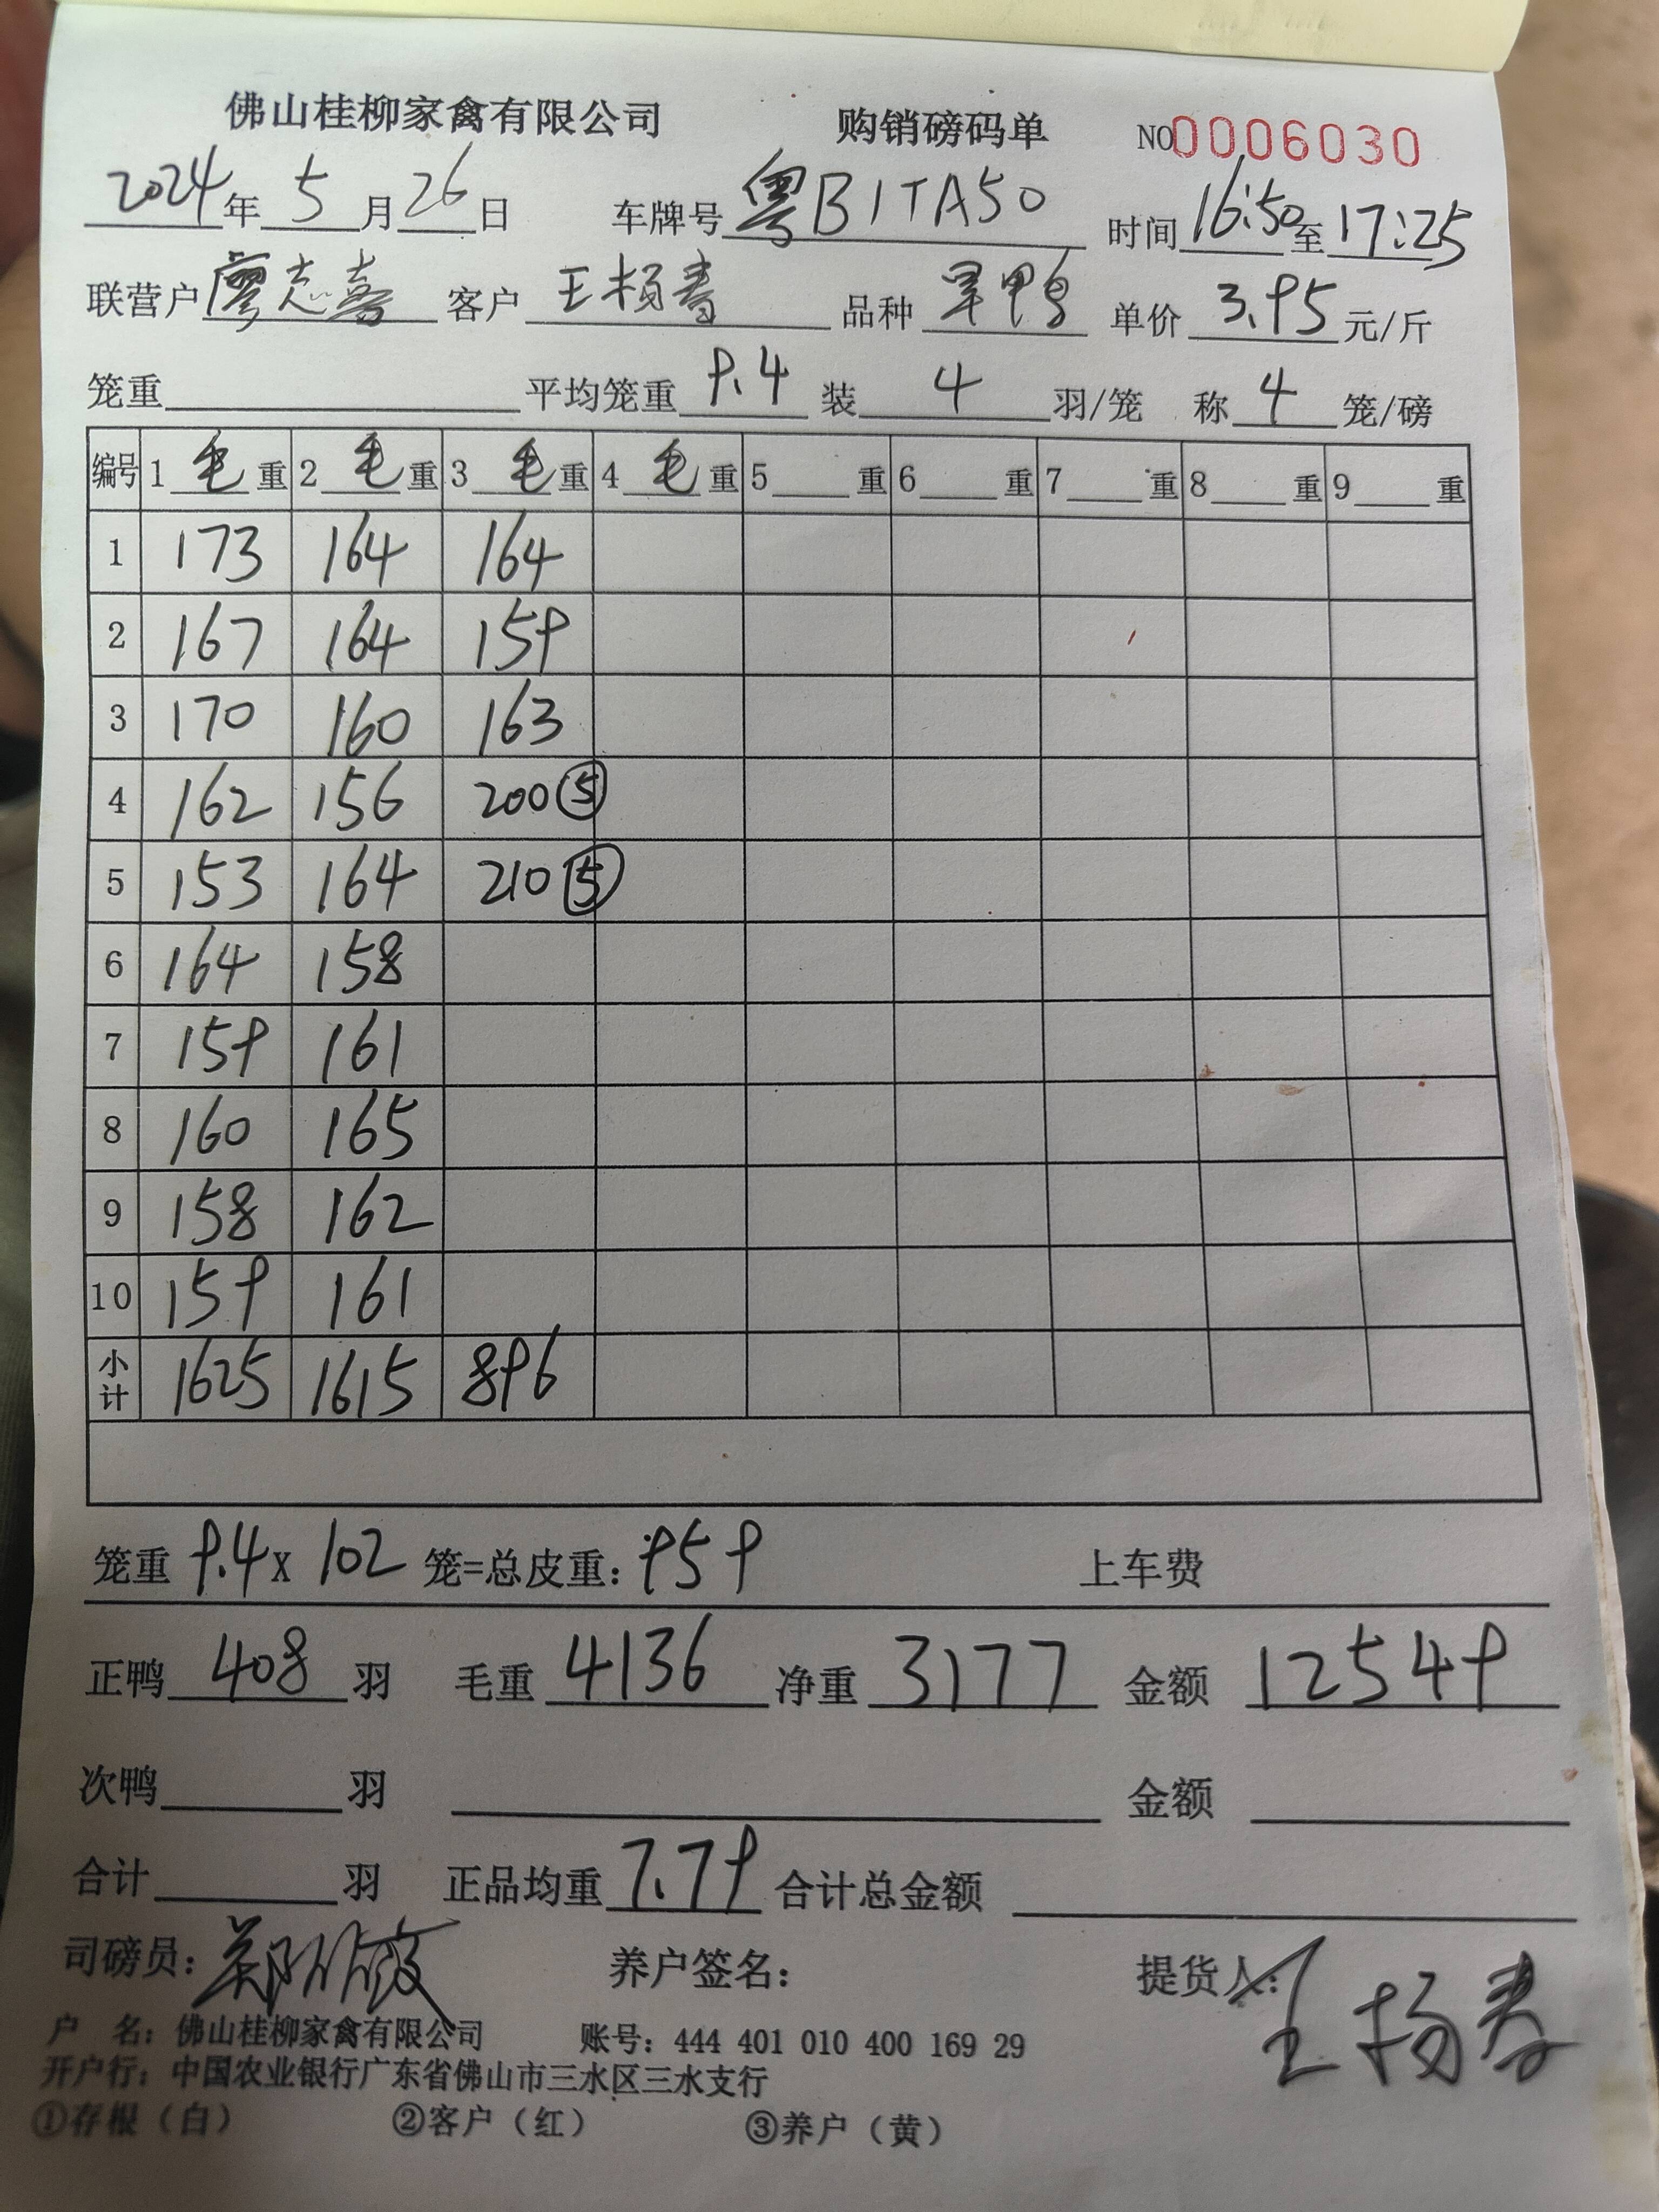 佛山桂柳家禽有限公司 购销磅码单 NO 0006030
2024年 5 月 26 日 车牌号 粤B1TA50 时间 16:50 至 17:25
联营户 廖志喜 客户 王杨春 品种 旱鸭 单价 3.95 元/斤
笼重 平均笼重 9.4 装 4 羽/笼 称 4 笼/磅
编号 1 毛 重 2 毛 重 3 毛 重 4 毛 重 5 重 6 重 7 重 8 重 9 重
1 173 164 164
2 167 164 159
3 170 160 163
4 162 156 200⑤
5 153 164 210⑤
6 164 158
7 159 161
8 160 165
9 158 162
10 159 161
小计 1625 1615 896
笼重 9.4 X 102 笼=总皮重: 959 上车费
正鸭 408 羽 毛重 4136 净重 3177 金额 12549
次鸭 羽 金额
合计 羽 正品均重 7.79 合计总金额
司磅员: 养户签名: 提货人: 王杨春
户 名: 佛山桂柳家禽有限公司 账号: 444 401 010 400 169 29
开户行: 中国农业银行广东省佛山市三水区三水支行
①存根（白） ②客户（红） ③养户（黄）